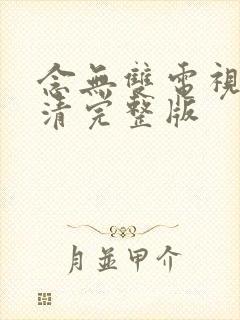 念無雙電視
清完整版
月並甲介